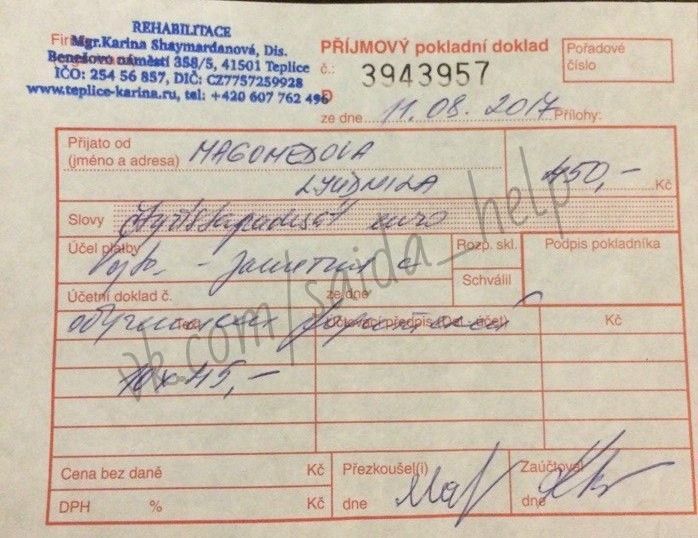 REHABILITACE
Mgr.Karina Shaymardanová, Dis.
Benešovo náměstí 358/5, 41501 Teplice
IČO: 254 56 857, DIČ: CZ7757259928
www.teplice-karina.ru, tel: +420 607 762 496
PŘÍJMOVÝ pokladní doklad
Pořadové
číslo
č.: 3943957
ze dne 11.08.2017 Přílohy:
Přijato od
(jméno a adresa) MAGOMEDOVA
LYUDMILA
450,- Kč
Slovy euro
Účel platby
Rozp. skl.
Podpis pokladníka
Schválil
Účetní doklad č. ze dne
Text Účtovací předpis (Dal - účet) Kč
10x45,-
Cena bez daně Kč
Přezkoušel(i)
Zaúčtoval
DPH % Kč
dne
dne
vk.com/saida_help